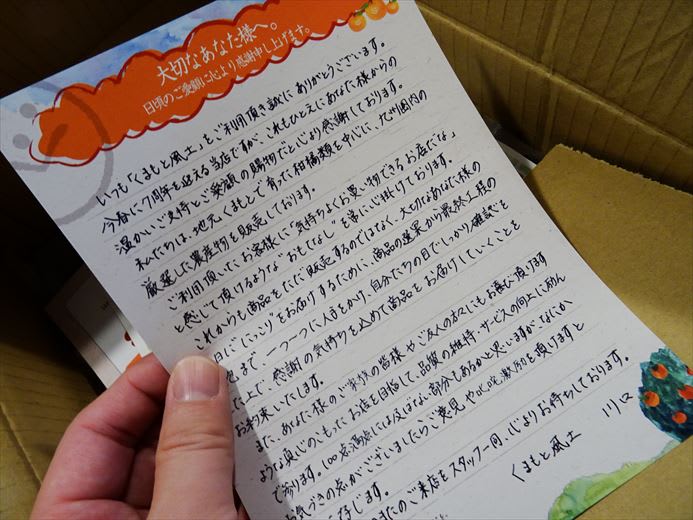 大切なあなた様へ。
日頃のご愛顧に心より感謝申し上げます。
いつも「くまもと風土」をご利用頂き誠にありがとうございます。
今春に7周年を迎える当店ですが、これもひとえにあなた様からの
温かいご支持とご愛顧の賜物だと心より感謝しております。
私たちは、地元くまもとで育った柑橘類を中心に、九州圏内の
厳選した農産物を販売しております。
ご利用頂いたお客様に“気持ちよくお買い物できるお店だな”
と感じて頂けるような“おもてなし”を常に心掛けております。
これからも商品をただ販売するのではなく、大切なあなた様の
日に“にっこり”をお届けするために、商品の選果から最終工程の
包まで、一つ一つに人手をかけ、自分たちの目でしっかり確認を
た上で、感謝の気持ちを込めて商品をお届けしていくことを
お約束いたします。
また、あなた様のご家族の皆様やご友人の方々にもお喜び頂けます
ような真心のこもったお店を目指して、品質の維持・サービスの向上に励ん
で参ります。100点満点には及ばない部分もあるかと思いますが、なにか
気づきの点がございましたらご意見やご叱咤激励を頂けますと
存じます。
またのご来店をスタッフ一同、心よりお待ちしております。
くまもと風土　川口